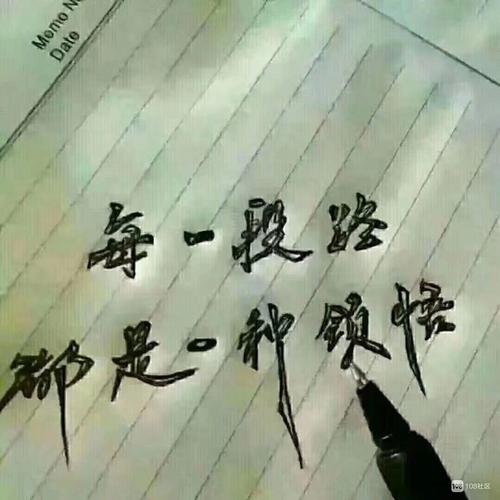 Memo No
Date
每一段路
都是一种领悟
108社区